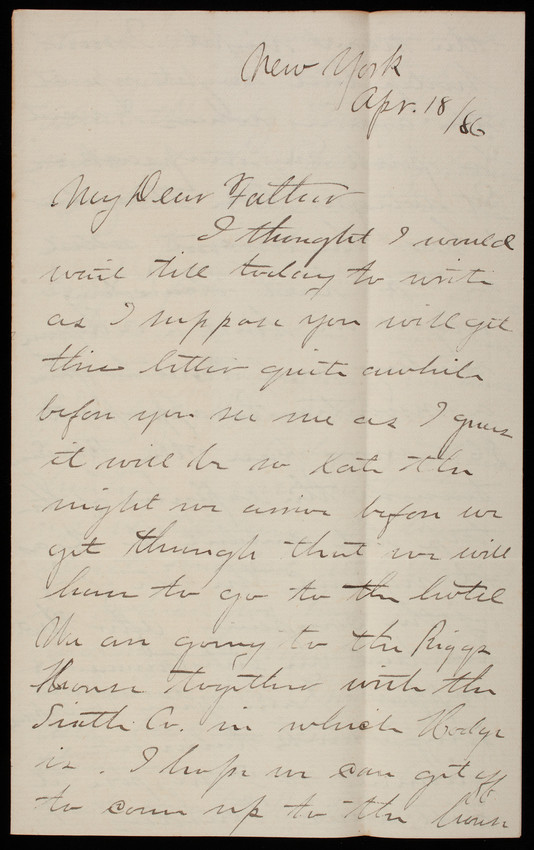 New York
Apr. 18/86
My Dear Father
I thought I would
wait till today to write
as I suppose you will get
this letter quite awhile
before you see me as I guess
it will be so late the
night we arrive before we
get through that we will
have to go to the hotel
We are going to the Riggs
House together with the
Sixth Co. in which Hodge
is. I hope we can get off
to come up to the house